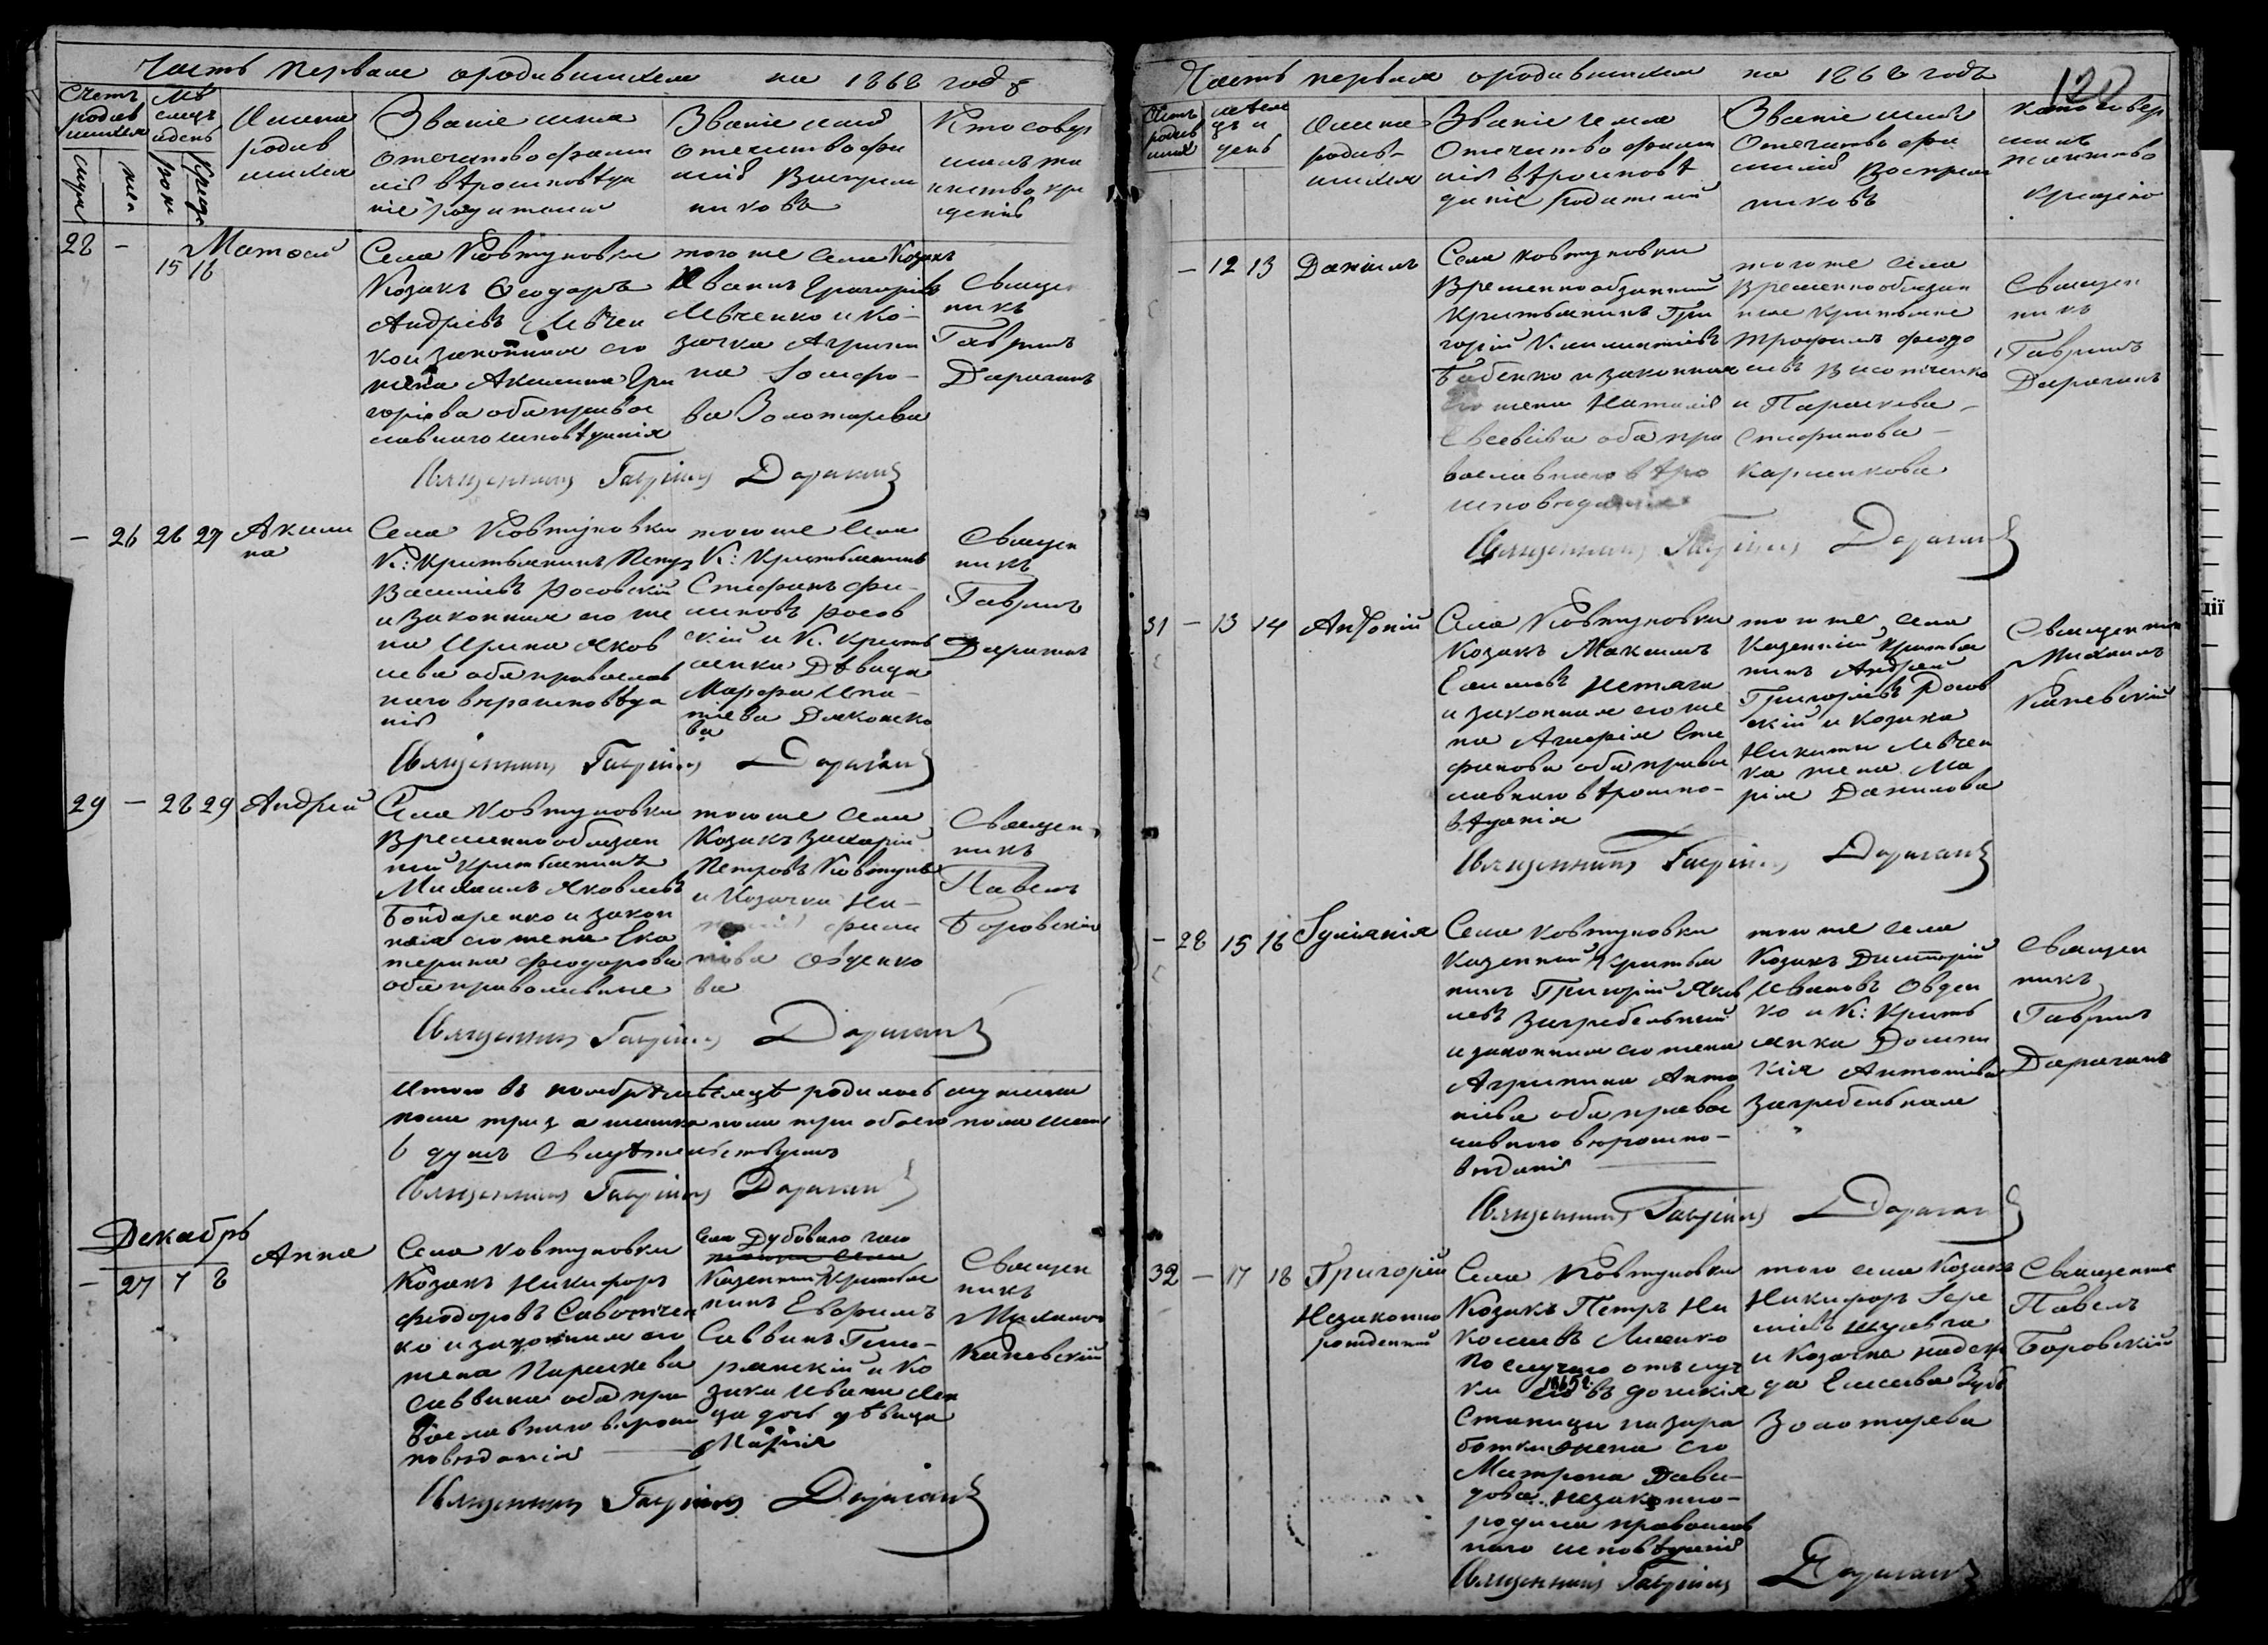 Часть первая о родившихся на 1868 годъ
Счетъ родив шихся
Мѣ сяцъ и день
Имена родив шихся
Званіе имя
отечество фами
лія и вѣроисповѣда
ніе родителей
Званіе имя
отечество фа
милія Воспріем
никовъ
Кто совер
шалъ та
инство кре
щенія
28 - 15 16 Матѳей
Села Ковтуновки
Козакъ Ѳеодоръ
Андріевъ Левчен
ко и законная его
жена Акилина Гри
горіева оба правос
лавнаго исповѣданія
того же села Козакъ
Иванъ Григоріевъ
Левченко и Ко-
зачка Агрипи
на Іосифо-
ва Золотарева
Священ
никъ
Гавріилъ
Дараганъ
Священникъ Гавріилъ Дараганъ
- 26 26 27 Акили
на
Села Ковтуновки
К: Крестьянинъ Петръ
Василіевъ Росовскій
и законная его же
на Ирина Яков
лева оба православ
наго вероисповѣда
нія
того же села
К: Крестьянинъ
Стефанъ Фи-
липовъ Росов
скій и К. Кресть
янка Дѣвица
Марфа Игна-
тіева Дяконско
ва
Священ
никъ
Гавріилъ
Дараганъ
Священникъ Гавріилъ Дараганъ
29 - 28 29 Андрей
Села Ковтуновки
Временно обязан
ный Крестьянинъ
Михаилъ Яковлевъ
Бондаренко и закон
ная его жена Ека
терина Феодорова
оба православные
того же села
Козакъ Захарій
Петровъ Ковтунъ
и Козачка На-
Фили
пова Овденко
ва
Священ
никъ
Павелъ
Боровскій
Священникъ Гавріилъ Дараганъ
Итого въ ноябрѣ мѣсяцѣ родилось мужеска
пола три 3 а женска пола три обоего пола шесть
6 душъ Свидѣтельствуемъ
Священникъ Гавріилъ Дараганъ
Декабрь
- 27 7 8 Анна
Села Ковтуновки
Козакъ Никифоръ
Феодоровъ Савотчен
ко и законная его
жена Параскева
Саввина оба пра
вославнаго вероис
поведанія
Села Дубоваго гаю
того же села
Казенный Крестья
нинъ Евфимъ
Саввинъ
и Ко
зака Ивана
ца дочь дѣвица
Марія
Священ
никъ
Михаилъ
Каневскій
Священникъ Гавріилъ Дараганъ
Часть первая о родившихся на 1868 годъ
120
Счетъ родив шихся
мѣся цъ и день
Имена
родив-
шихся
Званіе имя
Отечество фами
лія вѣроисповѣ
даніе родителей
Званіе имя
Отечество фа
милія Воспріем
никовъ
кто совер
шалъ
таинство
крещенія
- 12 13 Даніилъ
Села Ковтуновки
Временнообязанный
Крестьянинъ Гри
горій Климентіевъ
Бабенко и законная
его жена Наталія
Евсевіева оба пра
вославнаго вѣро
исповеданія
того же села
Временно обязан
ные Крестьяне
Трофимъ Феодо
сіевъ Висотченко
и Параскева
Стефанова
Карпенкова
Священ
никъ
Гавріилъ
Дараганъ
Священникъ Гавріилъ Дараганъ
31 - 13 14 Антоній
Села Ковтуновки
Козакъ Максимъ
Емиліевъ Нетяга
и законная его же
на Агафія Сте
фанова оба правос
лавнаго вѣроиспо-
вѣданія
того же села
Казенный Крестья
нинъ Андрей
Григоріевъ Росов
скій и Козака
Никиты Левчен
ка жена Ма
рія Данилова
Священникъ
Михаилъ
Каневскій
Священникъ Гавріилъ Дараганъ
- 28 15 16 Іуліанія
Села Ковтуновки
Казенный Крестья
нинъ Григорій Яков
левъ Загребельный
и законная его жена
Агрипина Анто
ніева оба правос
лавнаго вероиспо-
веданія
того же села
Козакъ Дмитрій
Ивановъ Овден
ко и К: Кресть
янка Домни
кія Антоніева
Загребельная
Священ
никъ
Гавріилъ
Дараганъ
Священникъ Гавріилъ Дараганъ
32 - 17 18 Григорій
Незаконно
рожденный
Села Ковтуновки
Козакъ Петръ Ни
колаевъ Лисенко
по случаю отлуч
ки его 1865 г. въ донскія
станицы на зара
ботки жена его
Матрона Дави-
дова незаконно-
родила православ
наго исповѣданія
того села Козакъ
Никифоръ Іере
міевъ Шульга
и Козачка Надеж
да Елисеева
Золотарева
Священникъ
Павелъ
Боровскій
Священникъ Гавріилъ Дараганъ
дії